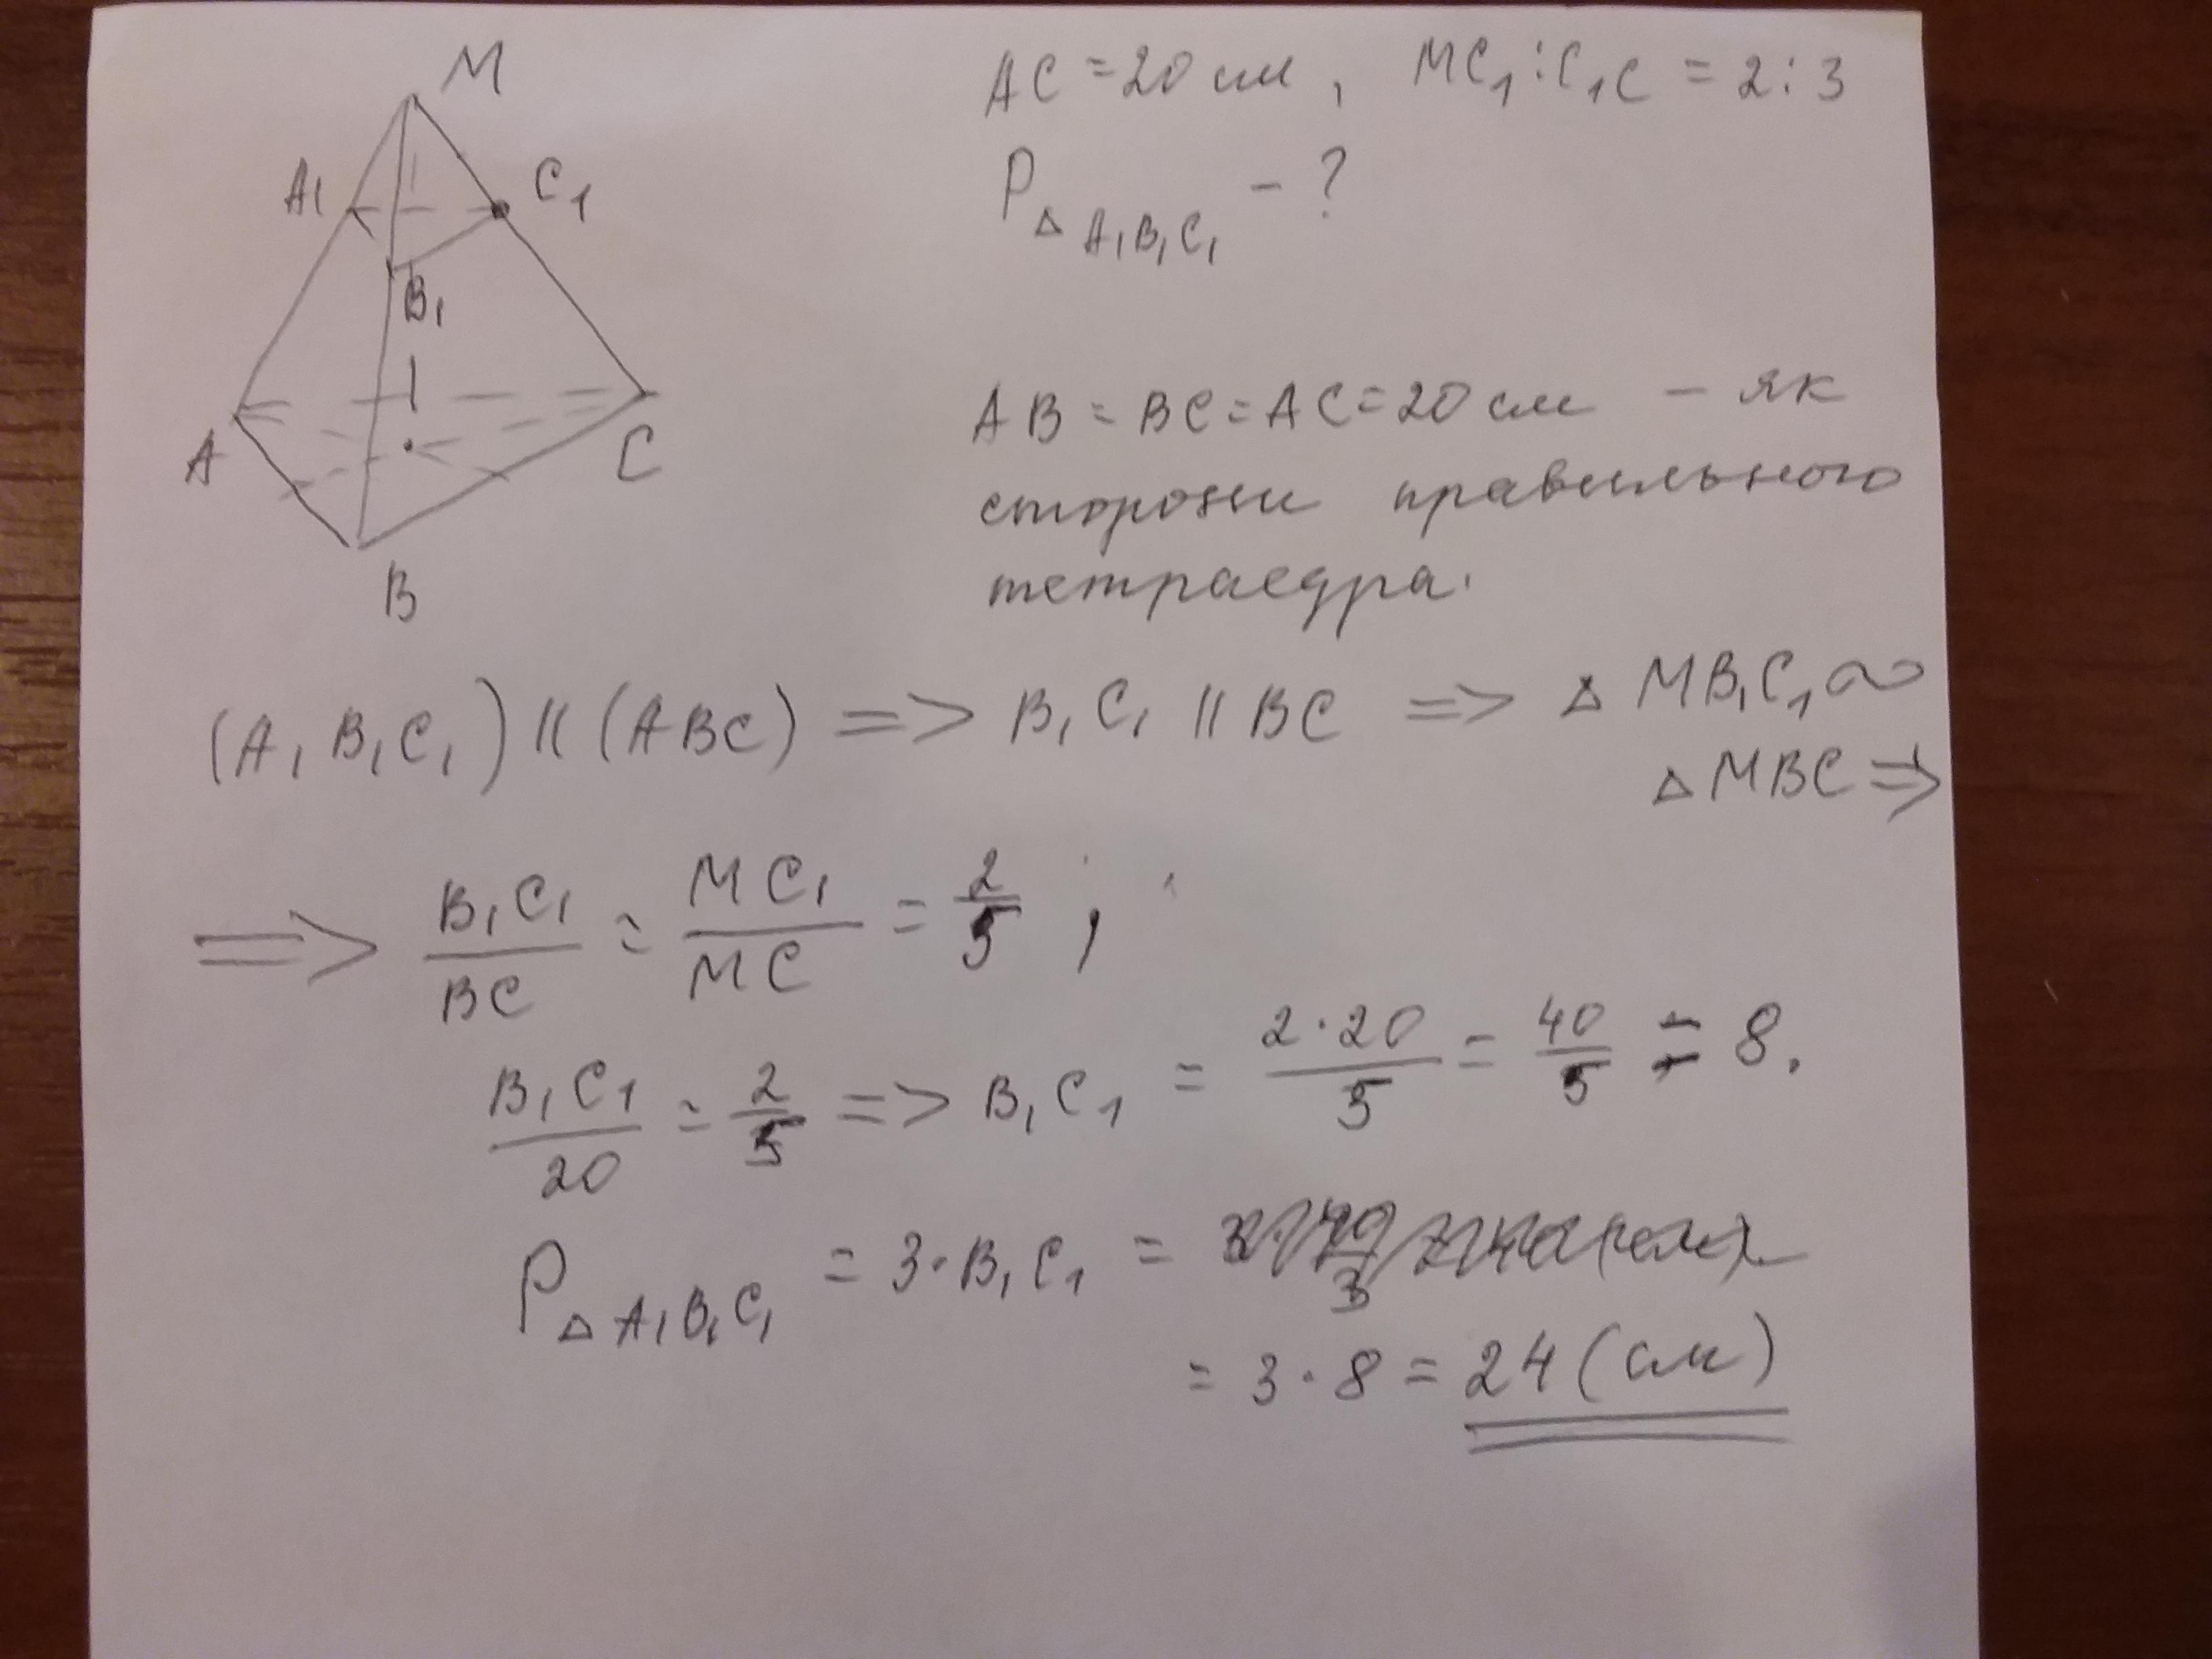 M
A₁
C₁
B₁
A
C
B
AC = 20 см, MC₁:C₁C = 2:3
P△A₁B₁C₁ - ?
AB = BC = AC = 20 см – як
сторони правильного
тетраедра.
(A₁B₁C₁) || (ABC) => B₁C₁ || BC => △ MB₁C₁ ∾
△ MBC =>
=> B₁C₁/BC = MC₁/MC = 2/5 ;
B₁C₁/20 = 2/5 => B₁C₁ = 2·20/5 = 40/5 = 8.
P△A₁B₁C₁ = 3·B₁C₁ =
= 3·8 = 24 (см)